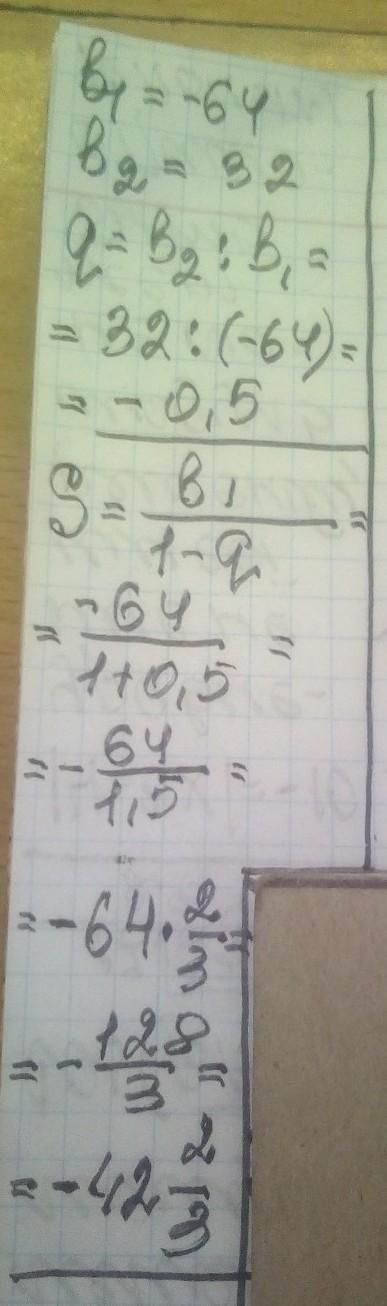 b₁ = -64
b₂ = 32
q = b₂ : b₁ =
= 32 : (-64) =
= - 0,5
S = b₁ / (1 - q) =
= -64 / (1+0,5) =
= - 64 / 1,5 =
= -64 · 2/3 =
= - 128/3 =
= -42 2/3